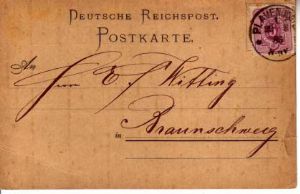 DEUTSCHE REICHSPOST.
POSTKARTE.
PLAUEN
An
Herrn E. Witting
in
Braunschweig